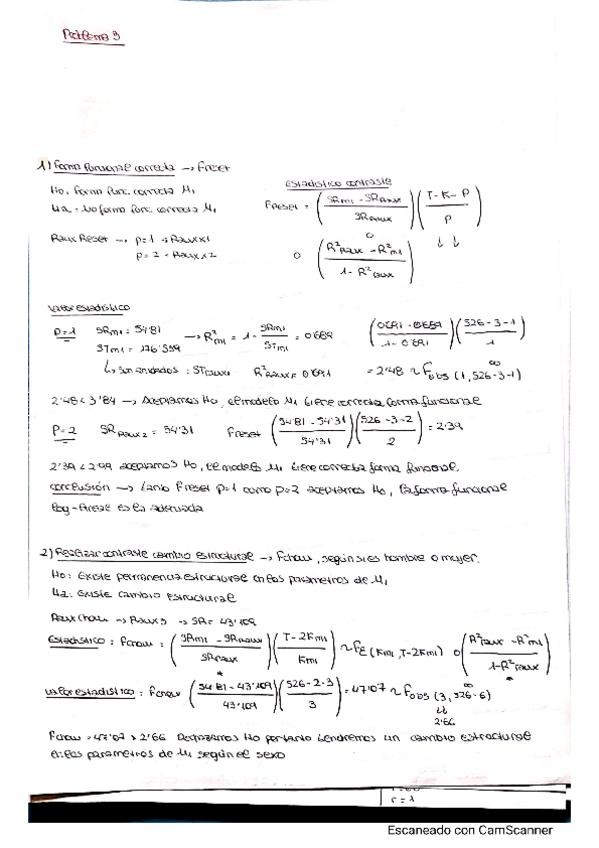 Problema 3
1) Forma funcional correcta → Freset
H0: Forma func. correcta M1
Ha: No forma func. correcta M1
Estadístico contraste
Freset = (SRm1 - SRaux / SRaux)(T-K-P / P)
o
Raux Reset → p=1 → Raux x1
p=2 → Raux x2
o (R²aux - R²m1 / 1 - R²aux)
Valor estadístico
P=1 SRm1 = 54'81 → R²m1 = 1 - SRm1/STm1 = 0'689
(0'691 - 0'689 / 1 - 0'691)(526-3-1 / 1)
STm1 =
R²aux = 0'691
= 2'48 ~ Fobs (1, 526-3-1)
∞
2'48 < 3'84 → Aceptamos H0, el modelo M1 tiene correcta forma funcional
P=2 SRaux2 = 54'31 Freset (54'81 - 54'31 / 54'31)(526-3-2 / 2) = 2'39
2'39 < 2'99 aceptamos H0, el modelo M1 tiene correcta forma funcional.
conclusión → tanto Freset p=1 como p=2 aceptamos H0, la forma funcional
log-lineal es la adecuada
2) Realizar contraste cambio estructural → Fchow, según si es hombre o mujer.
H0: Existe permanencia estructural en los parámetros de M1
Ha: Existe cambio estructural
Raux Chow → SR = 43'109
Estadístico: Fchow: (SRm1 - SRaux / SRaux)(T-2Km1 / Km1) ~ F (Km1, T-2Km1) o (R²aux - R²m1 / 1-R²aux)
Valor estadístico: Fchow (54'81 - 43'109 / 43'109)(526-2·3 / 3) = 47'07 ~ Fobs (3, 526-6)
∞
2'66
Fchow = 47'07 > 2'66 Rechazamos H0 por tanto tendremos un cambio estructural
en los parámetros de M1 según el sexo
r = 1
Escaneado con CamScanner